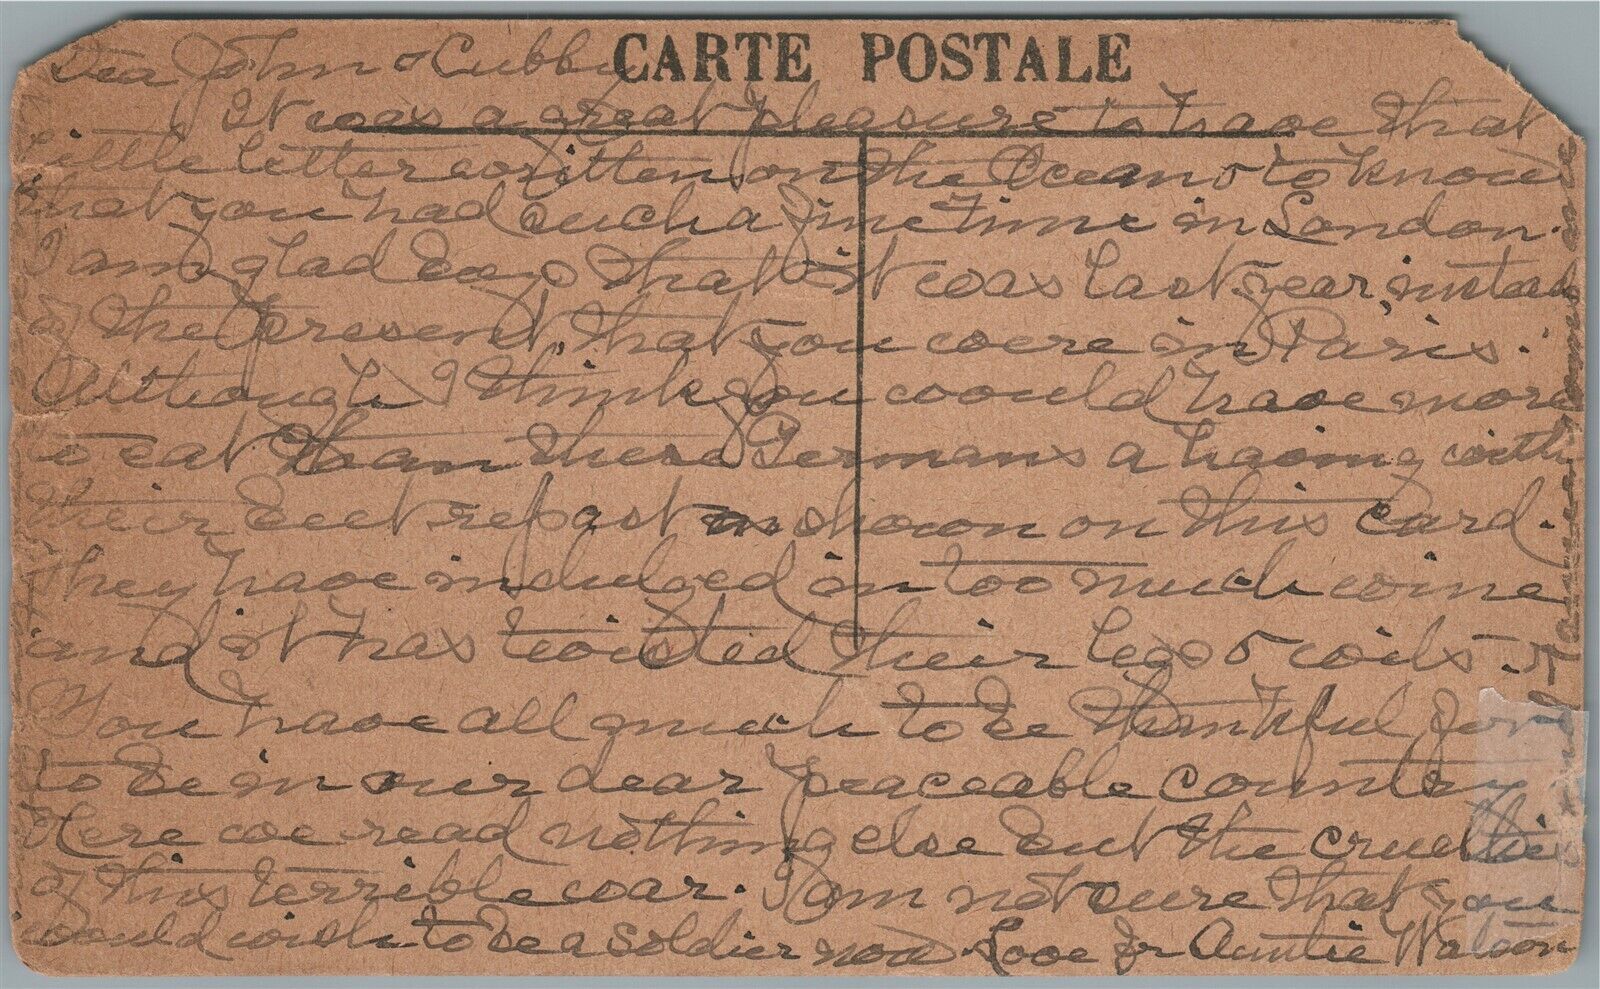 CARTE POSTALE
Dear John & Cubby
It was a great pleasure to have that
little letter written on the Ocean & to know
that you had such a fine time in London.
I am glad boys that it was last year, instead
of the present, that you were in Paris.
Although I think you would have more
to eat than these Germans a having with
their beet repast as shown on this card.
They have indulged in too much wine
and it has twisted their legs & coils.
You have all much to be thankful for
to be in our dear peaceable country
Here we read nothing else but the cruelties
of this terrible war. I am not sure that you
would wish to be a soldier now. Love fr Auntie Watson